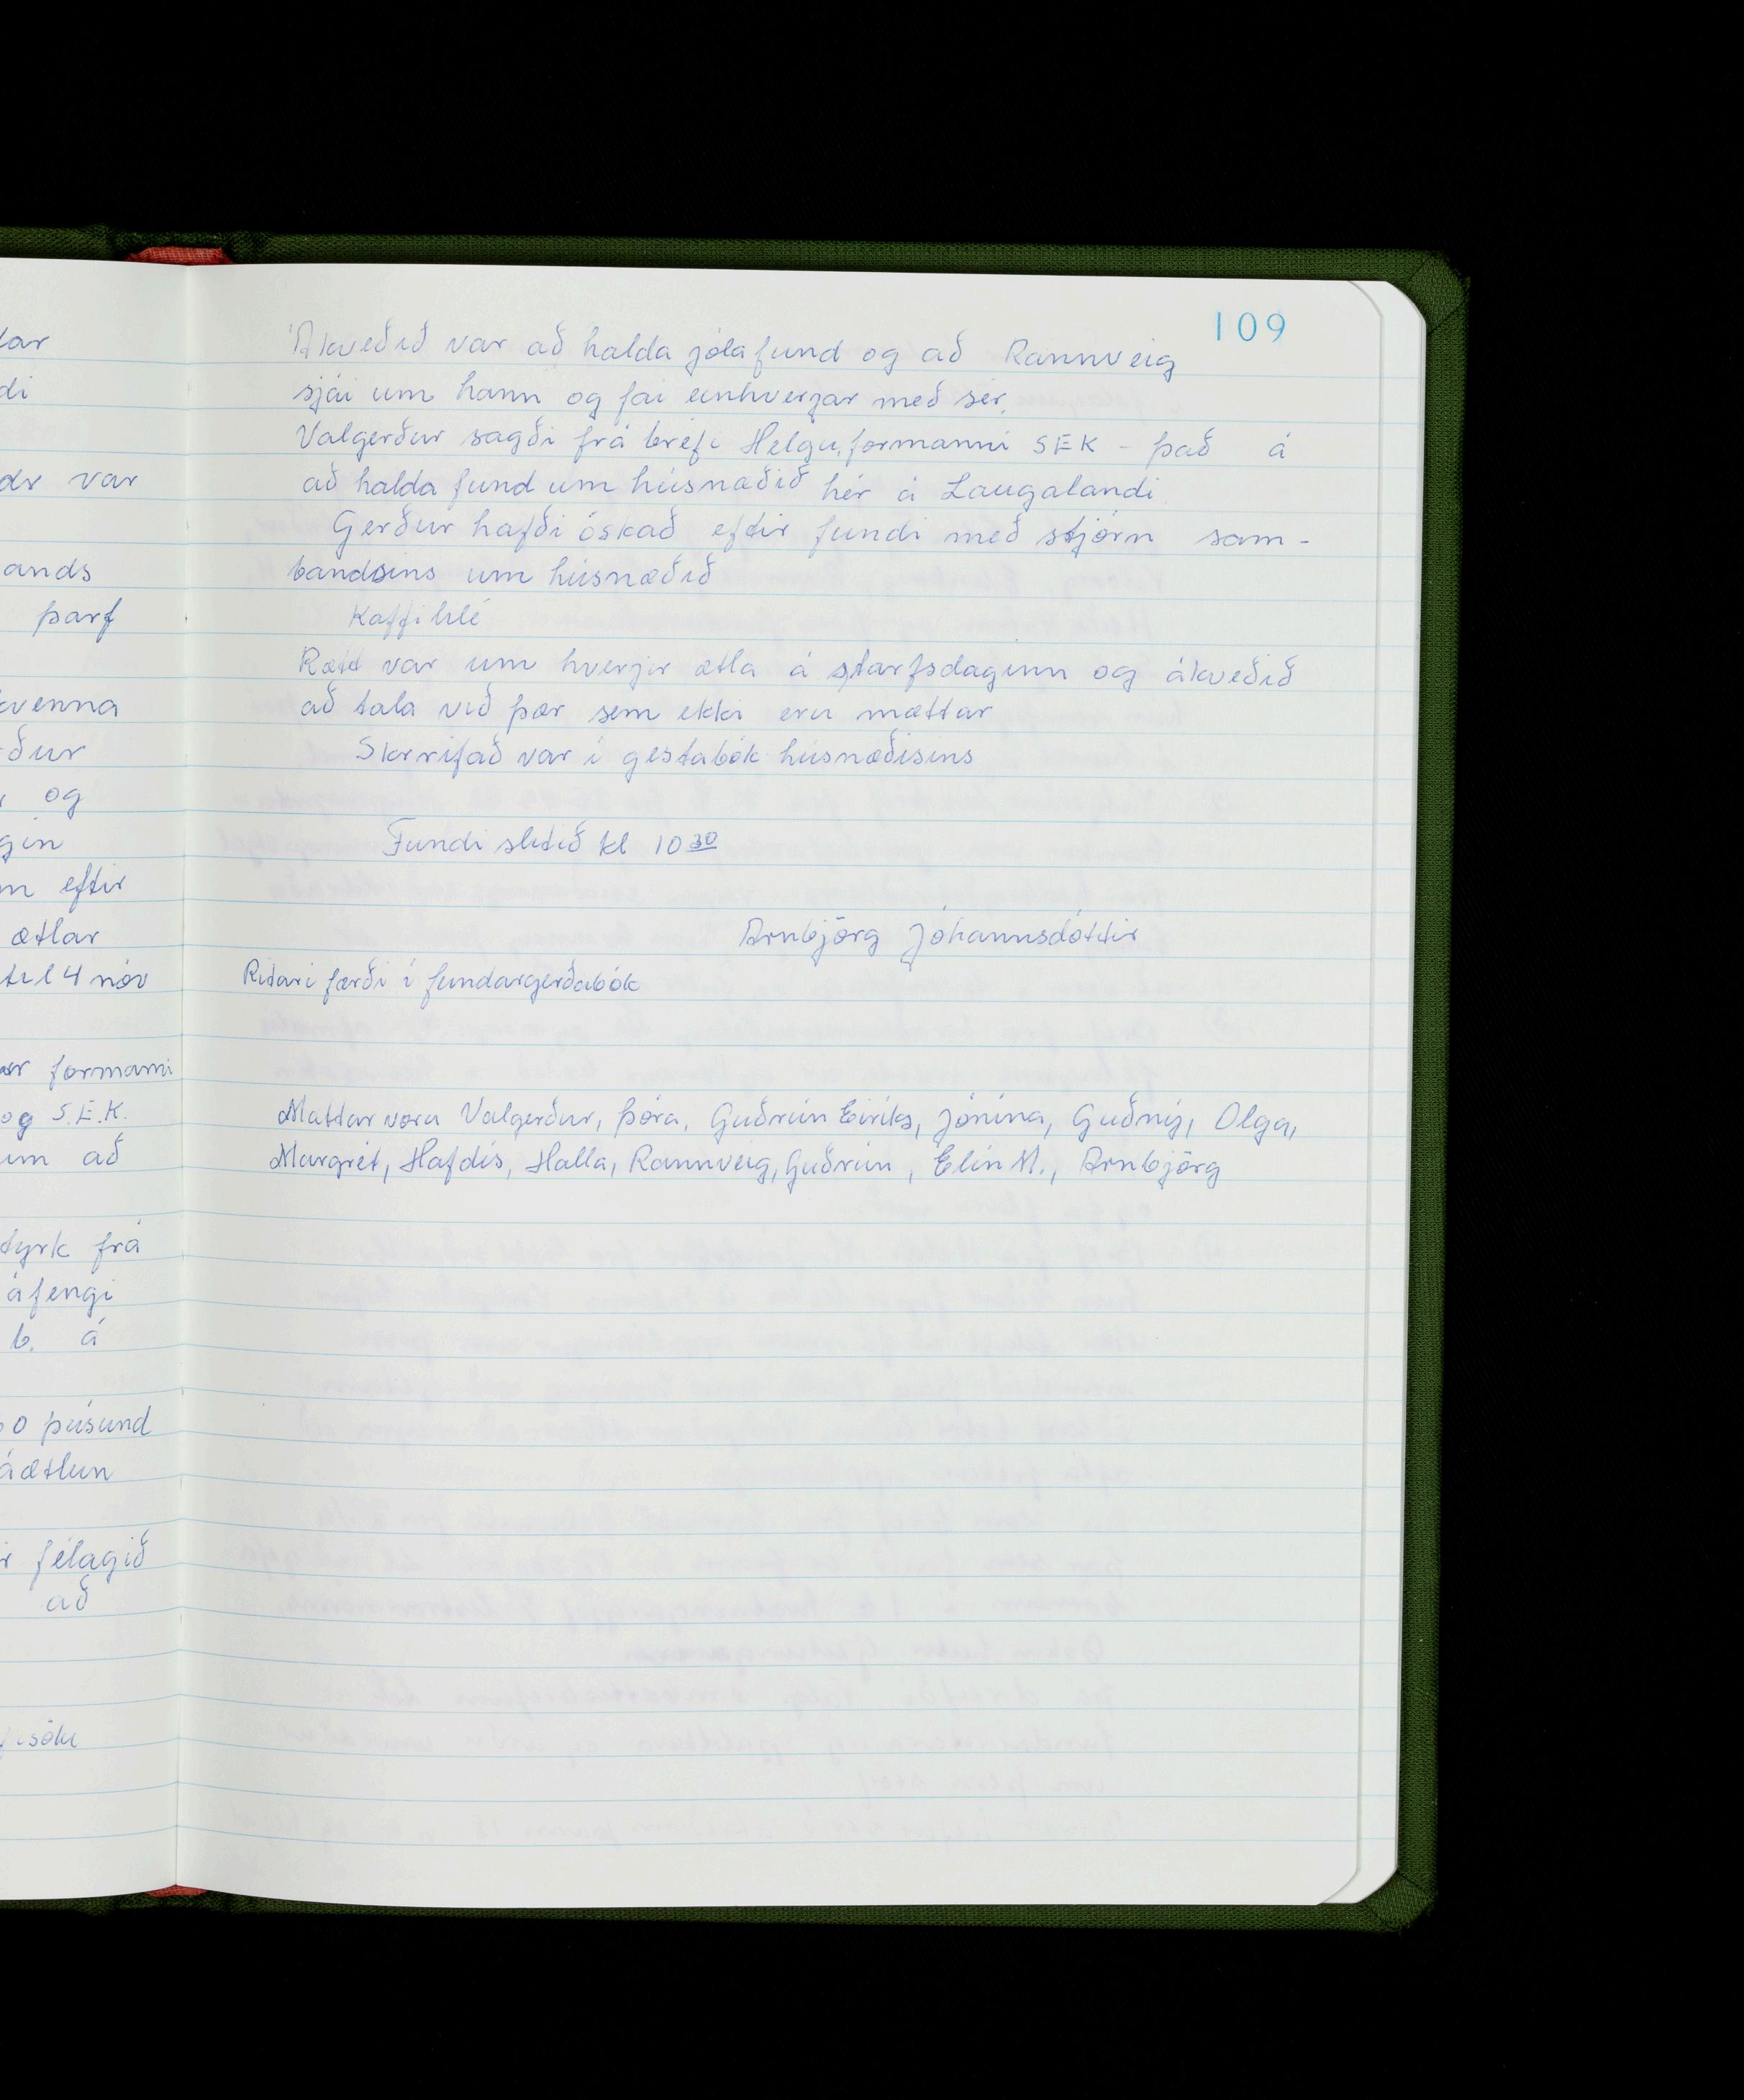 109
Ákveðið var að halda jólafund og að Rannveig
sjái um hann og fái einhverjar með sér.
Valgerður sagði frá bréfi Helgu, formanni SEK - það á
að halda fund um húsnæðið hér á Laugalandi
Gerður hafði óskað eftir fundi með stjórn sam-
bandsins um húsnæðið
Kaffihlé
Rætt var um hverjir ætla á starfsdaginn og ákveðið
að tala við þær sem ekki eru mættar
Skrrifað var í gestabók húsnæðisins
Fundi slitið kl 10 30
Arnbjörg Jóhannsdóttir
Ritari færði í fundargerðabók
Mættar voru Valgerður, Þóra, Guðrún Eiríks, Jónína, Guðný, Olga,
Margrét, Hafdís, Halla, Rannveig, Guðrún, Elín M., Arnbjörg
lar
di
var
ands
þarf
kvenna
ður
og
gin
m eftir
ætlar
til 4 nóv
formanni
og S.E.K.
um að
styrk frá
áfengi
b. á
0 þúsund
áætlun
félagið
að